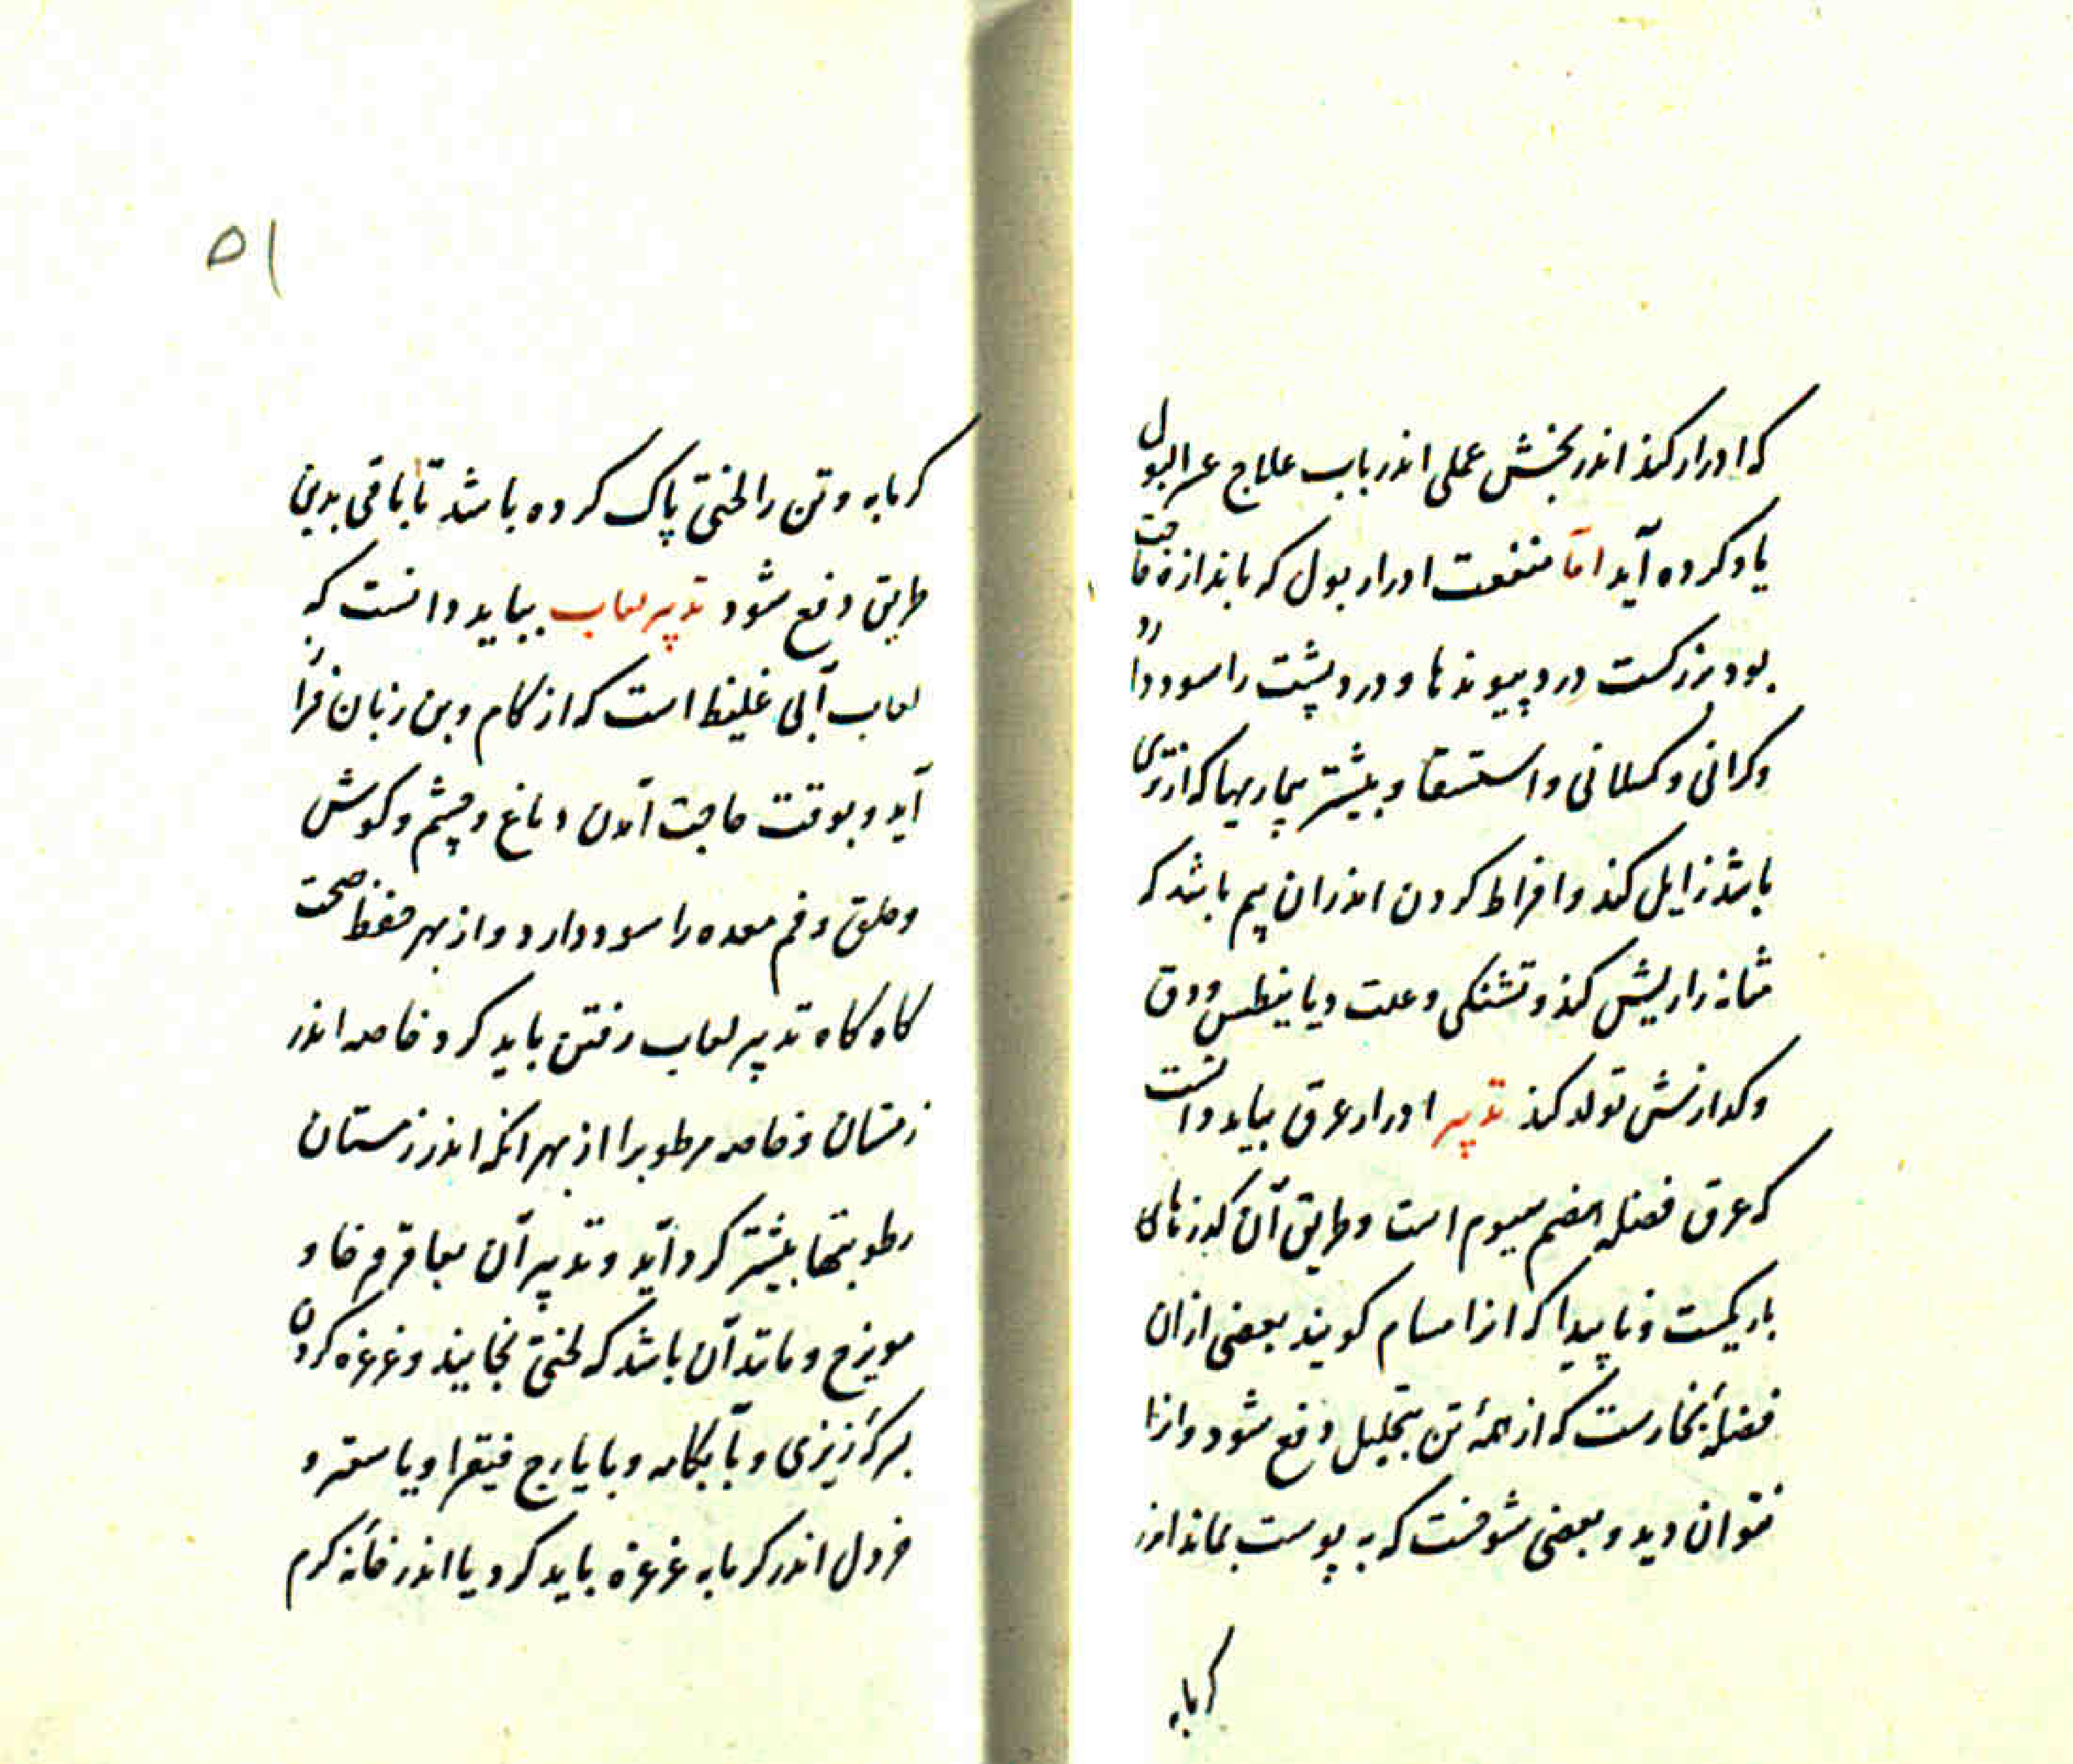 که ادرار کند اندر بخش عملی اندر باب علاج عسر البول
یاد کرده آید اما منفعت ادرار بول که باندازهٔ حاجت
بود بزرکست درد پیوندها و درد پشت را سود دارد
و کرانی و کسلانی و استسقا و بیشتر بیماریها که از تری
باشد زایل کند و افراط کردن اندران بیم باشد که
مثانه را ریش کند و تشنکی و علت دیابیطس و دق
و کدازش تولد کند تدبیر ادرار عرق بباید دانست
که عرق فضله هضم سیوم است و طریق آن کذرهای
باریکست و ناپیدا که انرا مسام کویند بعضی ازان
فضلهٔ بخارست که از همهٔ تن بتحلیل دفع شود و انرا
نتوان دید و بعضی شوخست که به پوست بماند اندر
کرمابه
۵۱
کرمابه و تن را لختی پاک کرده باشد تا باقی بدین
طریق دفع شود تدبیر لعاب بباید دانست که
لعاب آبی غلیظ است که از کام و بن زبان فراز
آید و بوقت حاجت آمدن دماغ و چشم و کوش
و حلق و فم معده را سود دارد و از بهر حفظ صحت
کاه کاه تدبیر لعاب رفتن باید کرد خاصه اندر
زمستان و خاصه مرطوبرا از بهر انکه اندر زمستان
رطوبتها بیشتر کرد آید و تدبیر آن بعاقرقرحا و
مویزج و مانند آن باشد که لختی بخایند و غرغره کردن
بسرکه زیزی و بآبکامه و بایارج فیقرا و یا سعتر و
خردل اندر کرمابه غرغره باید کرد یا اندر خانهٔ کرم